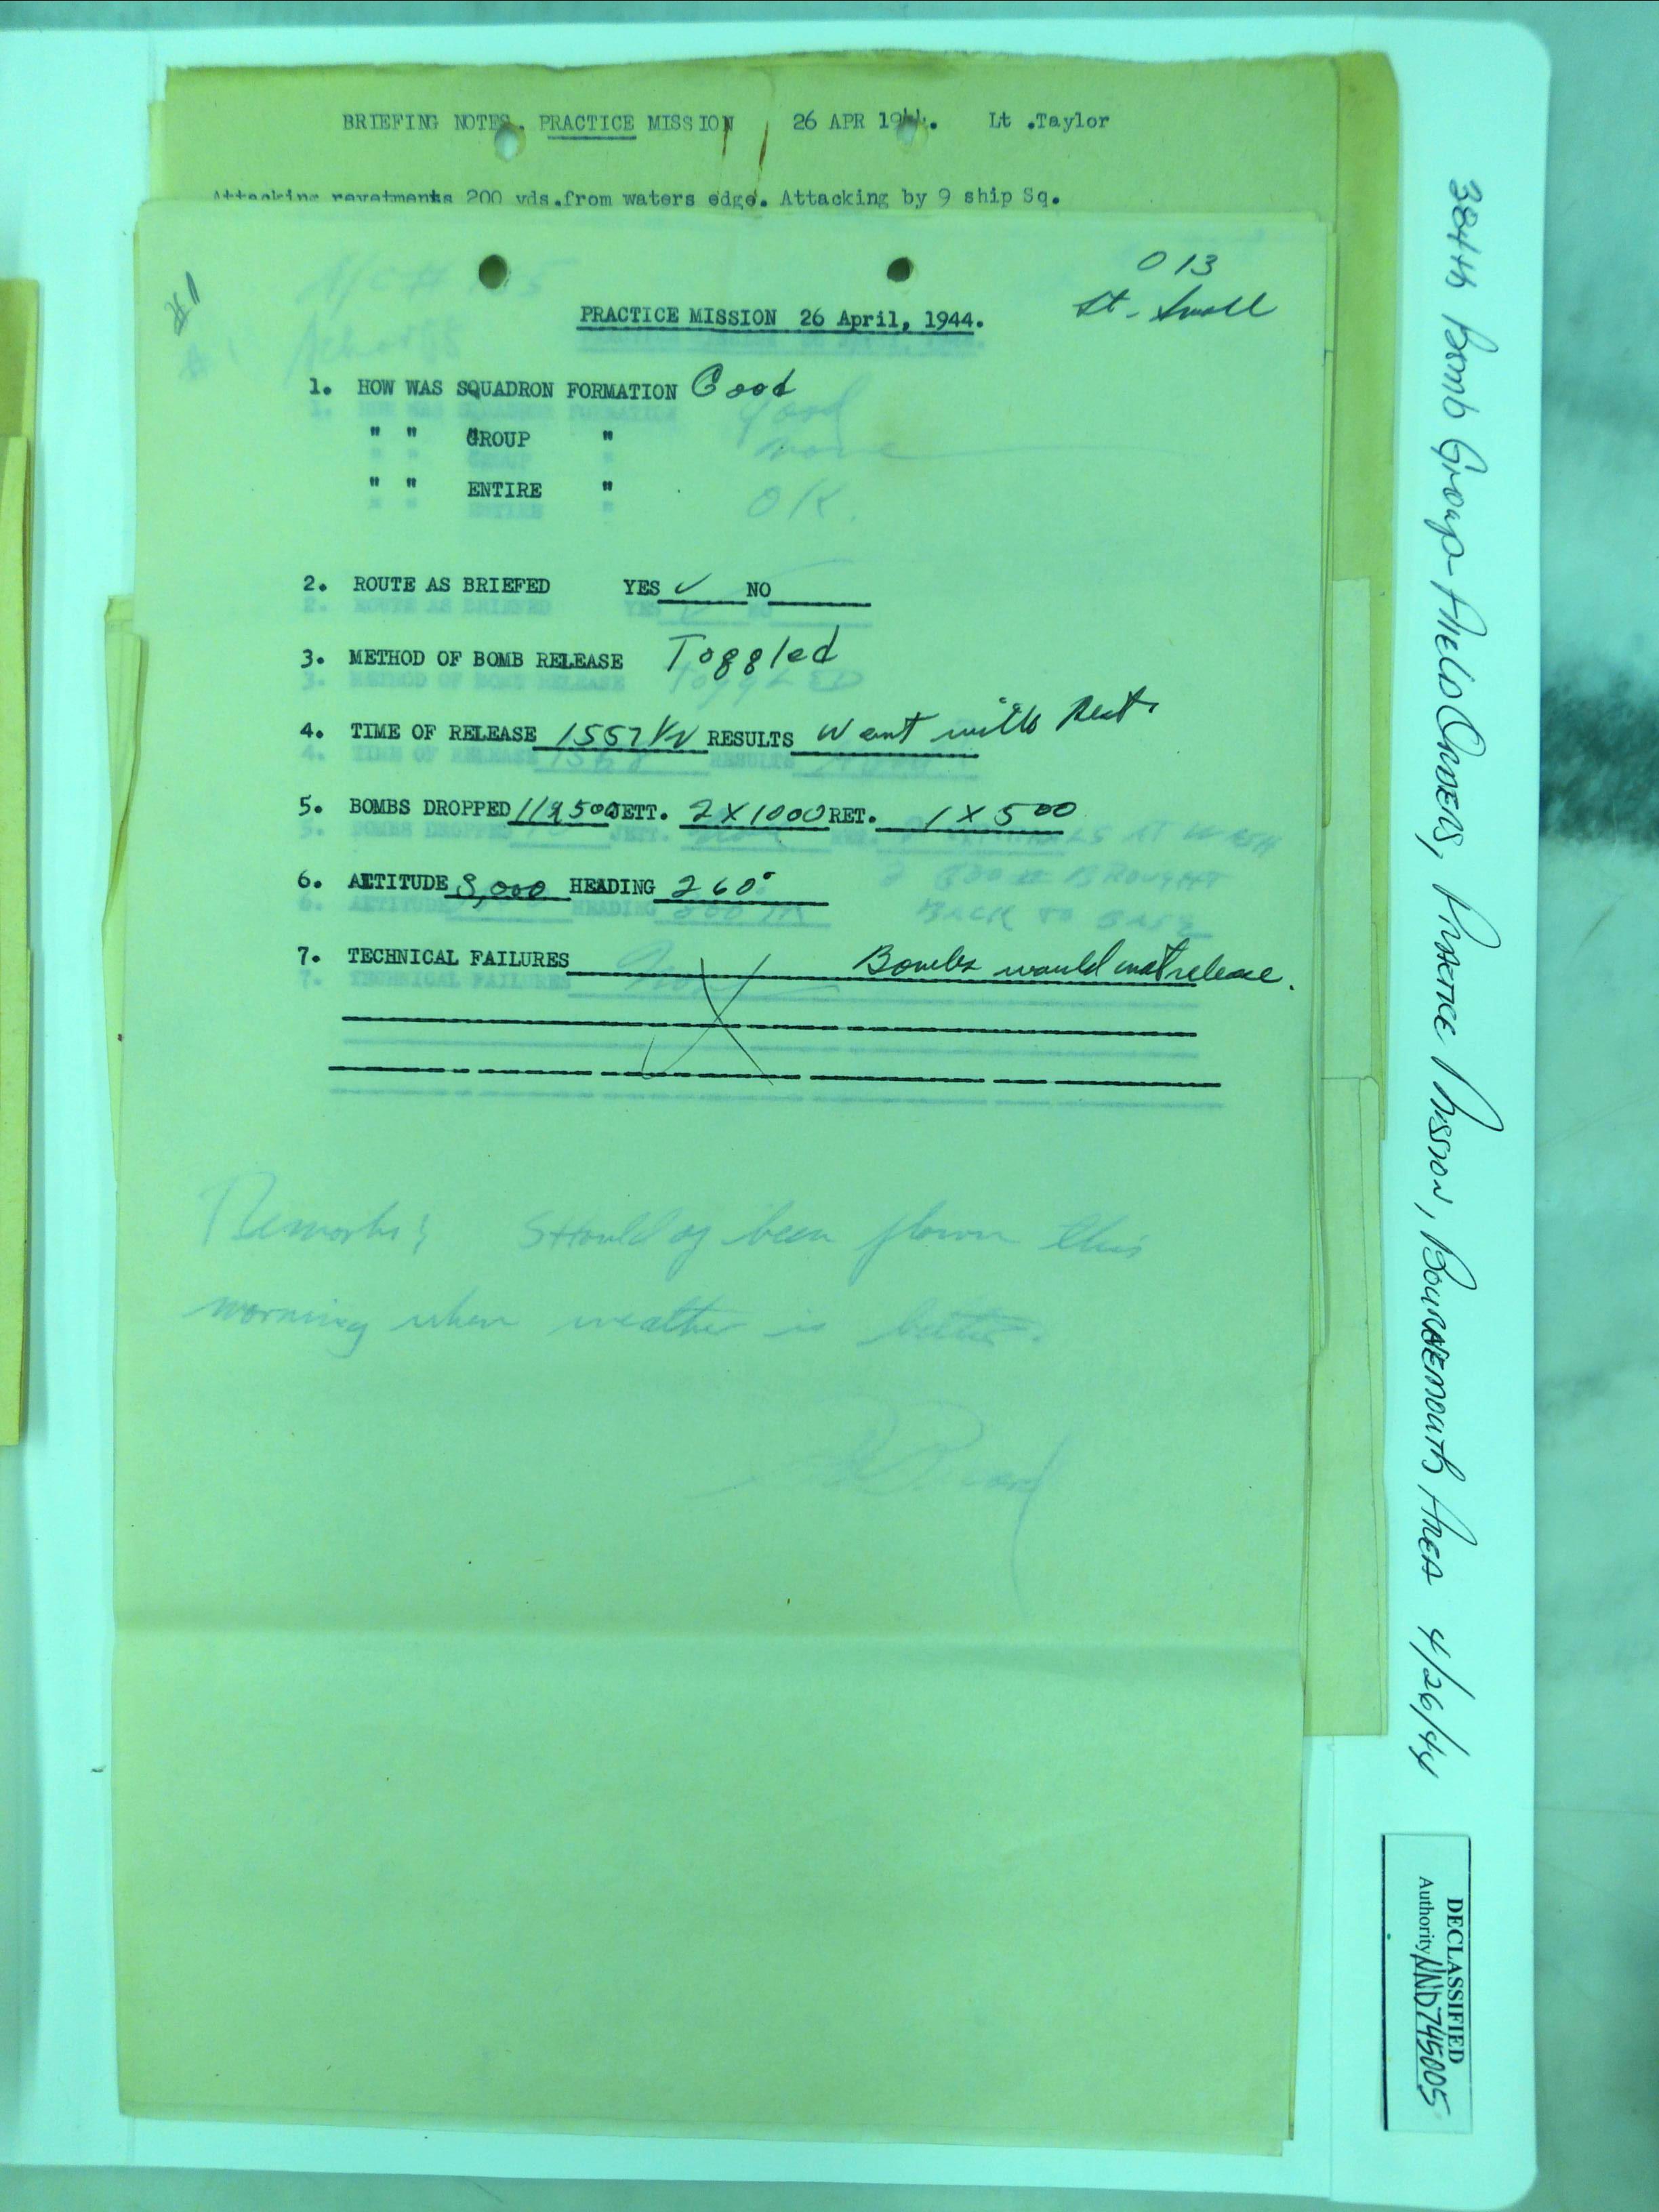 BRIEFING NOTES. PRACTICE MISSION 26 APR 1944. Lt .Taylor
Attacking revetments 200 yds.from waters edge. Attacking by 9 ship Sq.
013
Lt. Small
PRACTICE MISSION 26 April, 1944.
1. HOW WAS SQUADRON FORMATION Good
Good
" " GROUP "
none
" " ENTIRE "
OK.
2. ROUTE AS BRIEFED YES ✓ NO
3. METHOD OF BOMB RELEASE Toggled
TOGGLED
4. TIME OF RELEASE 1557 1/2 RESULTS Went with Rest.
5. BOMBS DROPPED JETT. 2 X 1000 RET. 1 X 500
AT WASH
BROUGHT
6. ALTITUDE HEADING 260°
BACK TO BASE
7. TECHNICAL FAILURES Bombs would not release.
Remarks: Should of been flown this
morning when weather is better.
384th Bomb Group - Field Orders, Practice Mission, Bournemouth Area 4/26/44
DECLASSIFIED
Authority NND745005